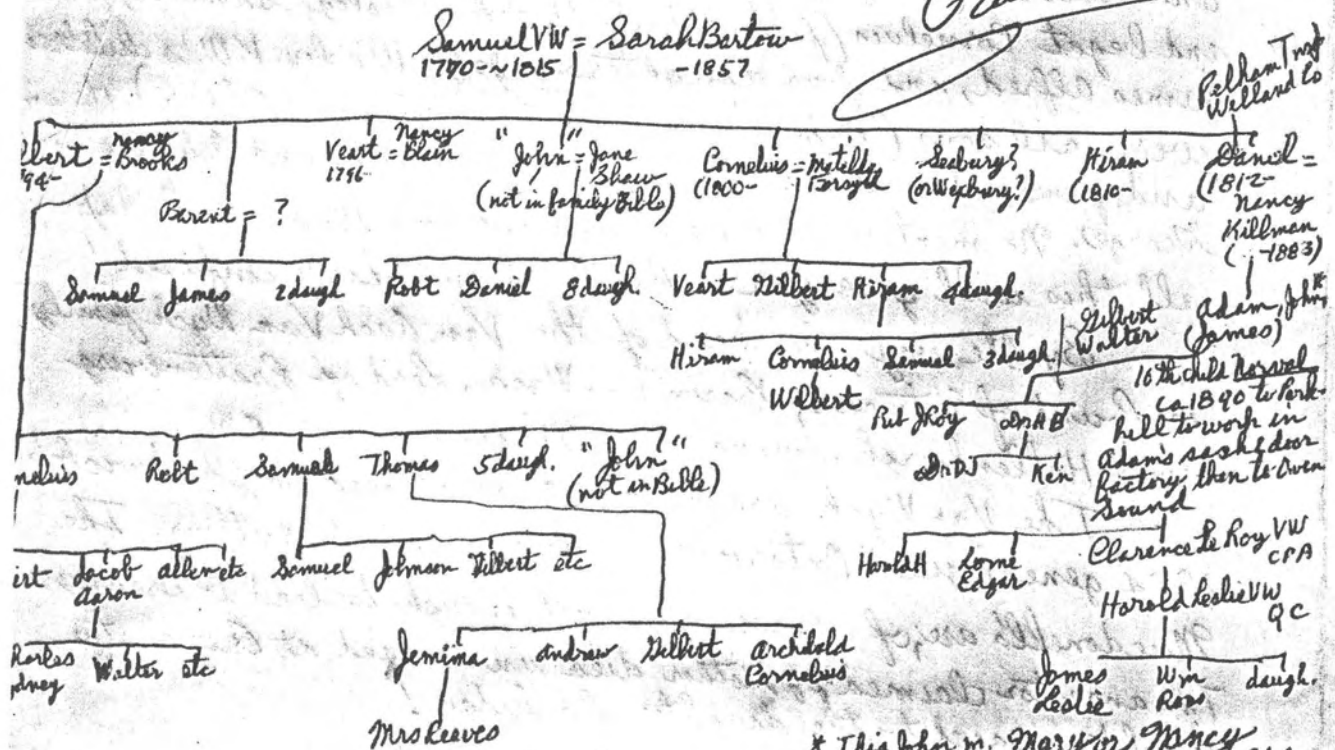 Samuel VW = Sarah Bartow
1770-~1815 -1857
Pelham Twp
Welland Co
lbert = Nancy Brooks
94-
Barent = ?
Veart = Nancy Blain
1796-
"John" = Jane Shaw
(not in family Bible)
Cornelius = Matilda Forsyth
(1800-
Seabury?
(or Wexbury?)
Hiram
(1810-
Daniel =
(1812-
Nancy
Killman
( -1883)
Samuel James 2 daugh
Robt Daniel 8 daugh.
Veart Gilbert Hiram 4 daugh.
Gilbert
Walter
Adam, John*
(James)
Hiram Cornelius Samuel 3 daugh.
Wilbert
10th child Norval
ca 1890 to Park-
hill to work in
Adam's sash & door
factory, then to Owen
Sound
J Roy Dr H B
Dr D Ken
nelius Robt Samuel Thomas 5 daugh. "John"
(not in Bible)
irt Jacob Allen etc
Aaron
Samuel Johnson Gilbert etc
Harold H Lorne
Edgar
Clarence Le Roy VW
CPA
Harold Leslie VW
QC
harles Walter etc
dney
Jemima Andrew Gilbert Archibald
Cornelius
James
Leslie
Wm
Ross
daugh.
Mrs Reaves
* This John m. Mary or Nancy